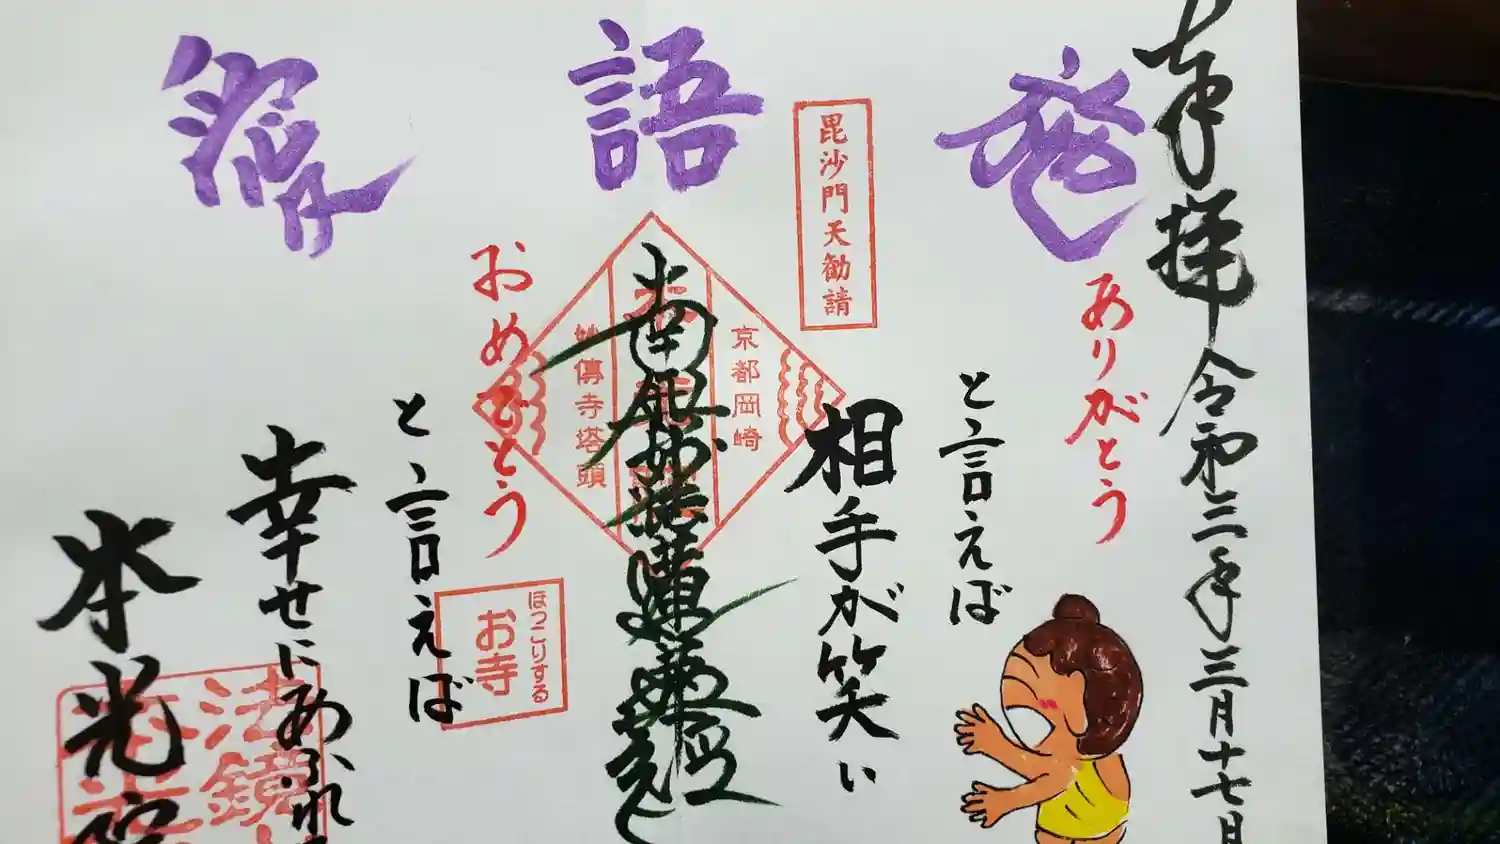 奉拝 令和三年三月十七日
發
ありがとう
と言えば
毘沙門天勧請
相手が笑い
語
京都岡崎
南無妙法蓮華経
妙傳寺塔頭
おめでとう
ほっこりする
お寺
と言えば
幸せにあふれ
本光院
法鏡